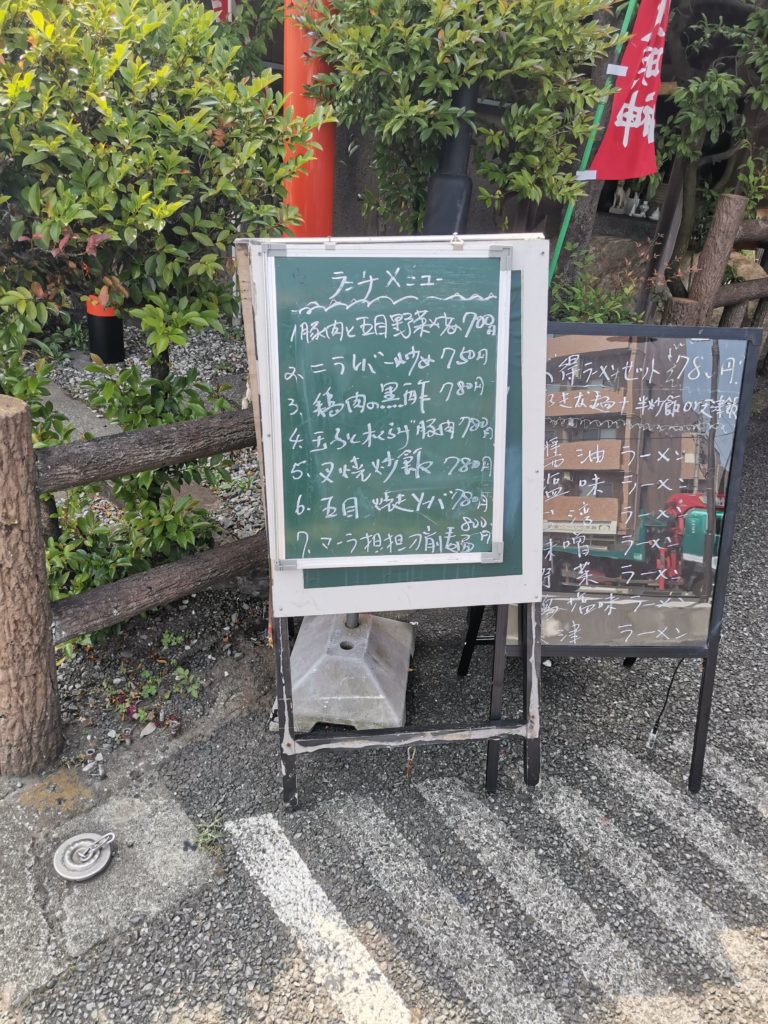 神
ランチメニュー
1.豚肉と五目野菜炒め 700円
2.ニラレバー炒め 750円
3.鶏肉の黒酢 780円
4.玉子と木くらげ豚肉 780円
5.叉焼炒飯 780円
6.五目焼きソバ 780円
7.マーラ担担刀削麺 800円
得ラーメンセット 780円
半炒飯 or
醤油 ラーメン
塩味 ラーメン
湾 ラーメン
味噌 ラーメン
野菜 ラーメン
塩味ラーメン
津 ラーメン